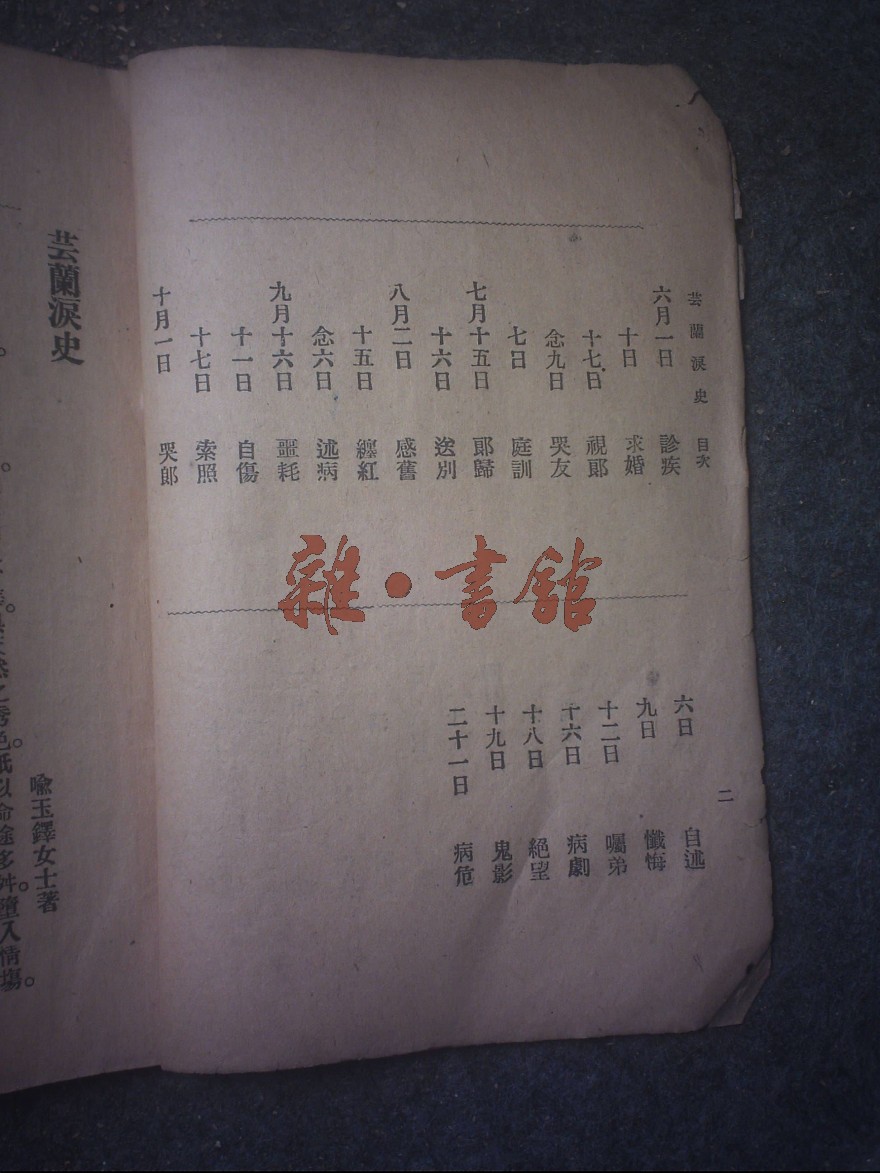 芸蘭淚史 目次
二
六月一日 診疾
十日 求婚
十七日 視郎
念九日 哭友
七日 庭訓
七月十五日 郎歸
十六日 送別
八月二日 感舊
十五日 纏紅
念六日 述病
九月十六日 噩耗
十一日 自傷
十七日 索照
十月一日 哭郎
六日 自述
九日 懺悔
十二日 囑弟
十六日 病劇
十八日 絕望
十九日 鬼影
二十一日 病危
雜·書館
芸蘭淚史
喩玉鐸女士著
秀色。祇以命途多舛。墮入情塲。